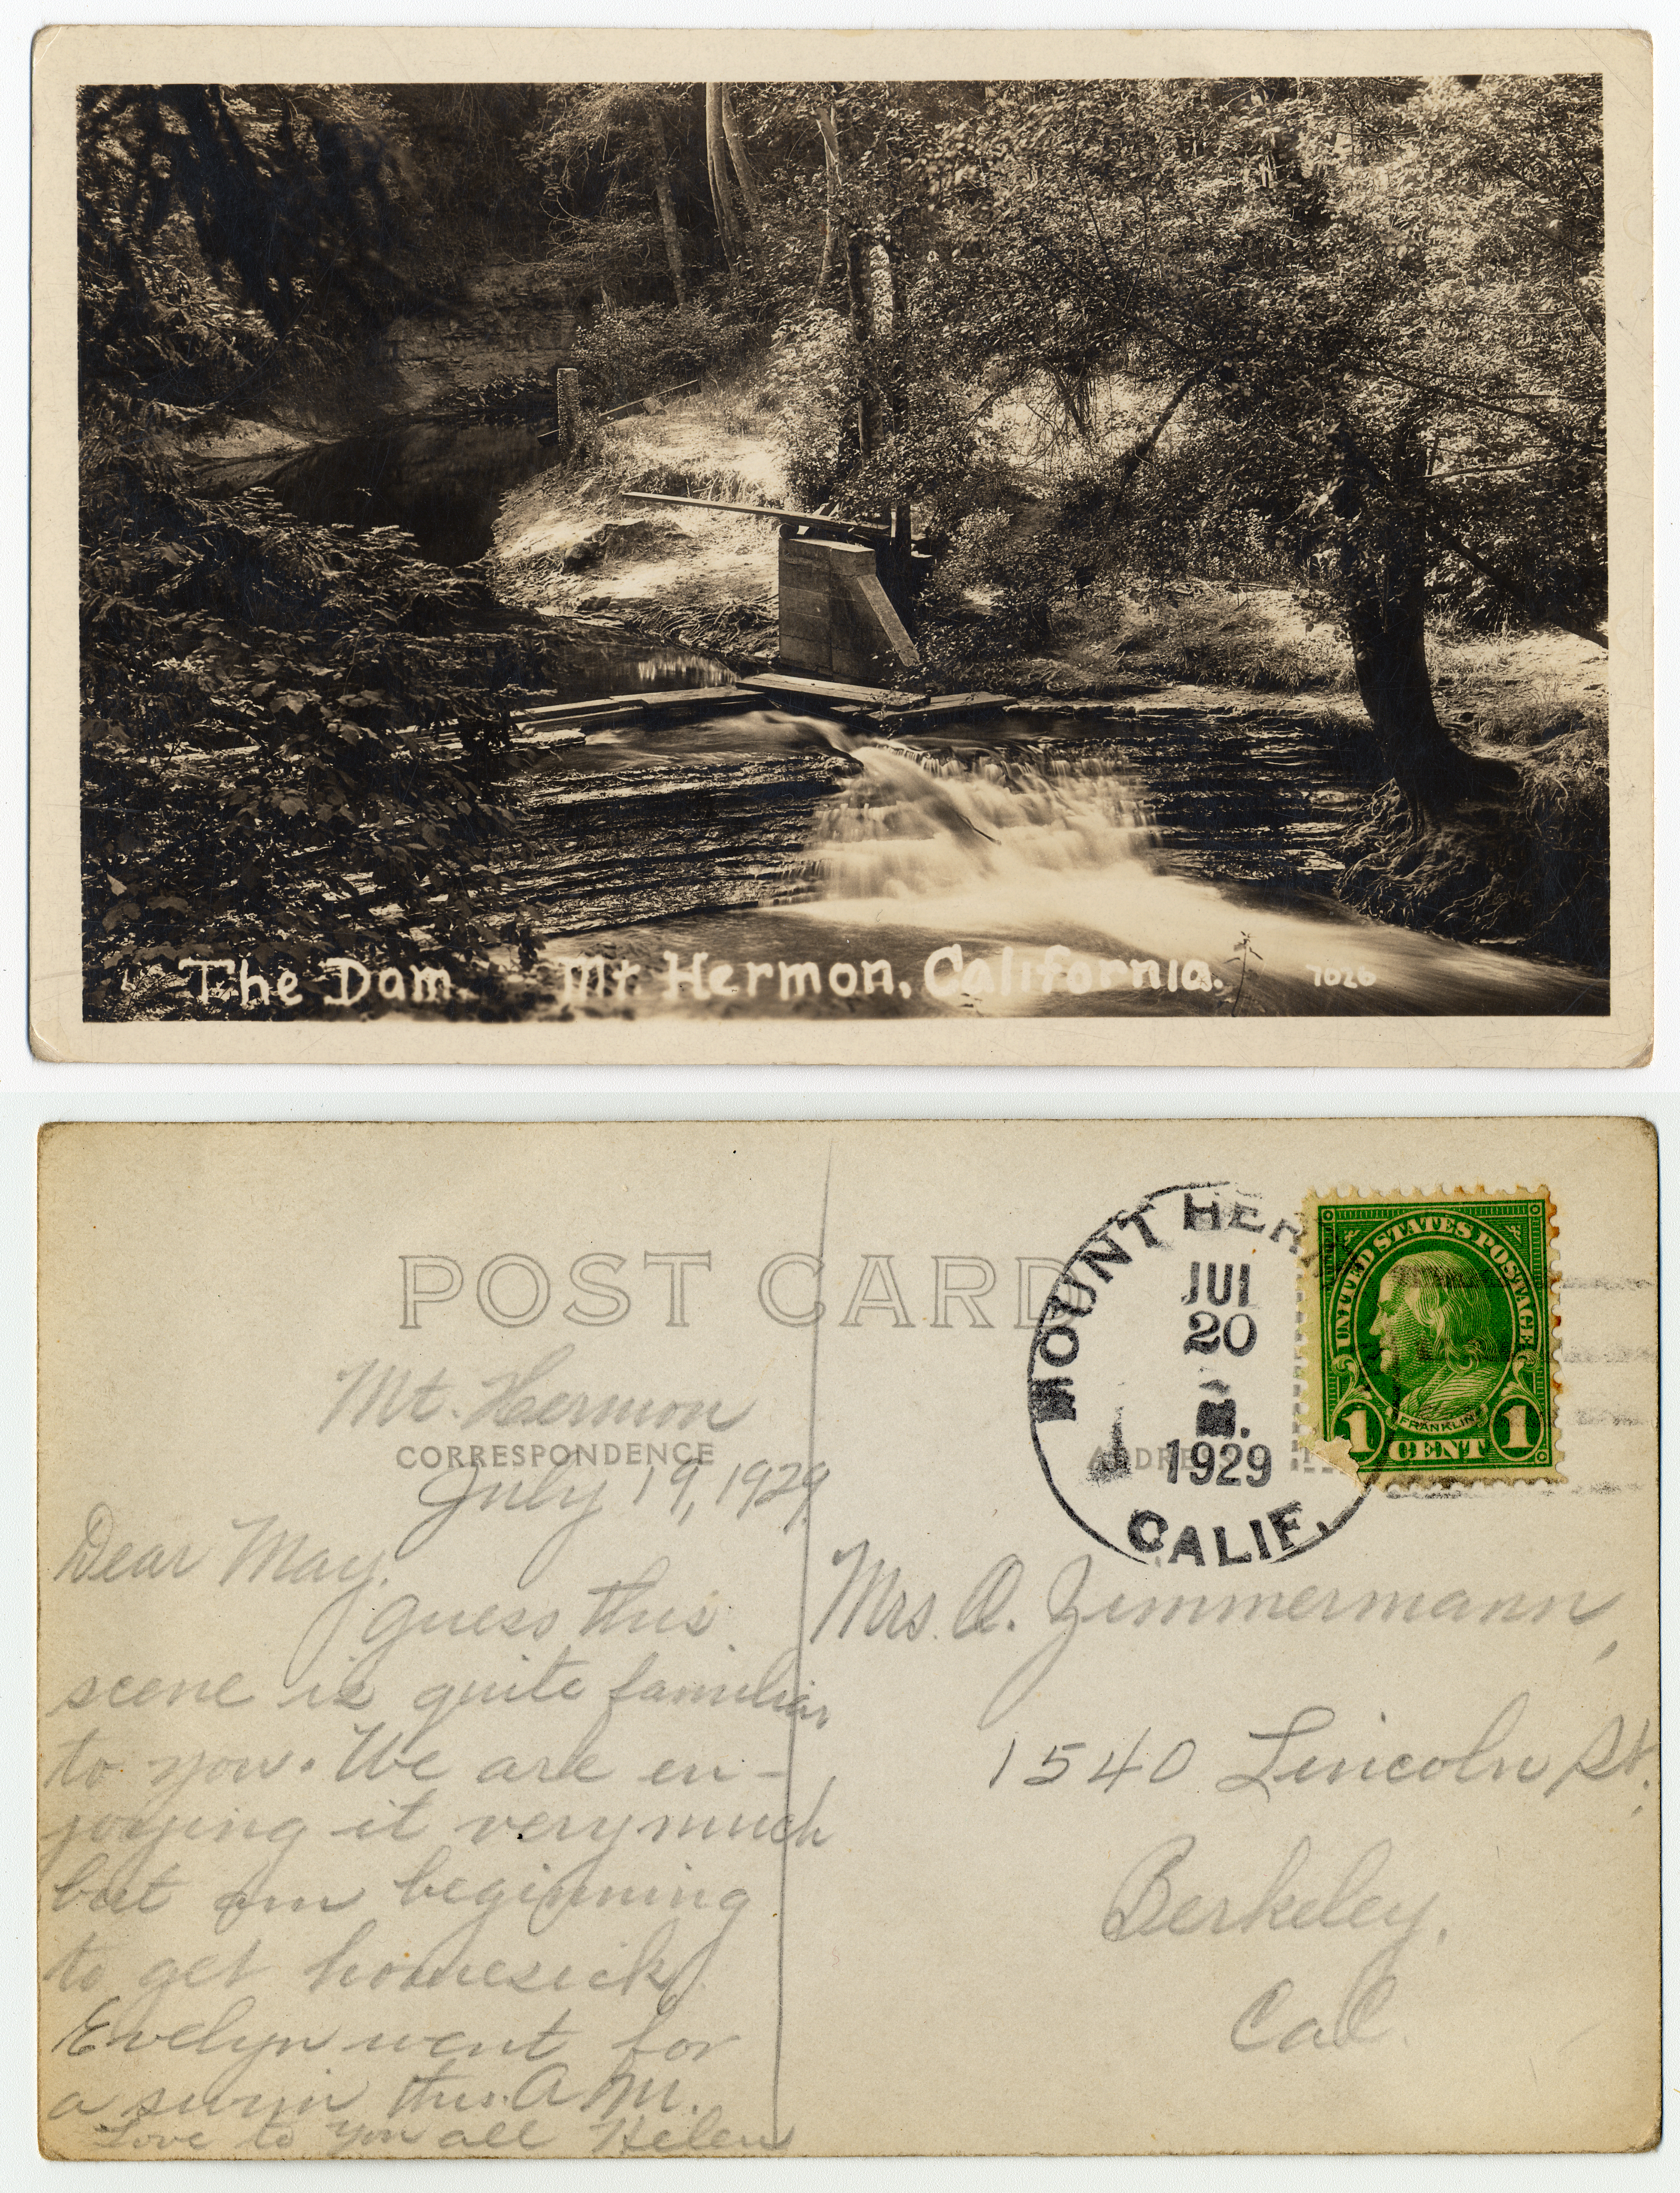 The Dam. Mt Hermon, California. 7626
POST CARD
CORRESPONDENCE
Mt. Hermon
July 19, 1929.
Dear May.
Guess this
scene is quite familiar
to you. We are en-
joying it very much
but am beginning
to get homesick.
Evelyn went for
a swim this A.M.
Love to you all Helen
MOUNT HER
JUL
20
M.
1929
CALIF.
UNITED STATES POSTAGE
FRANKLIN
1 CENT 1
ADDRESS
Mrs. A. Zimmermann,
1540 Lincoln St.,
Berkeley,
Cal.